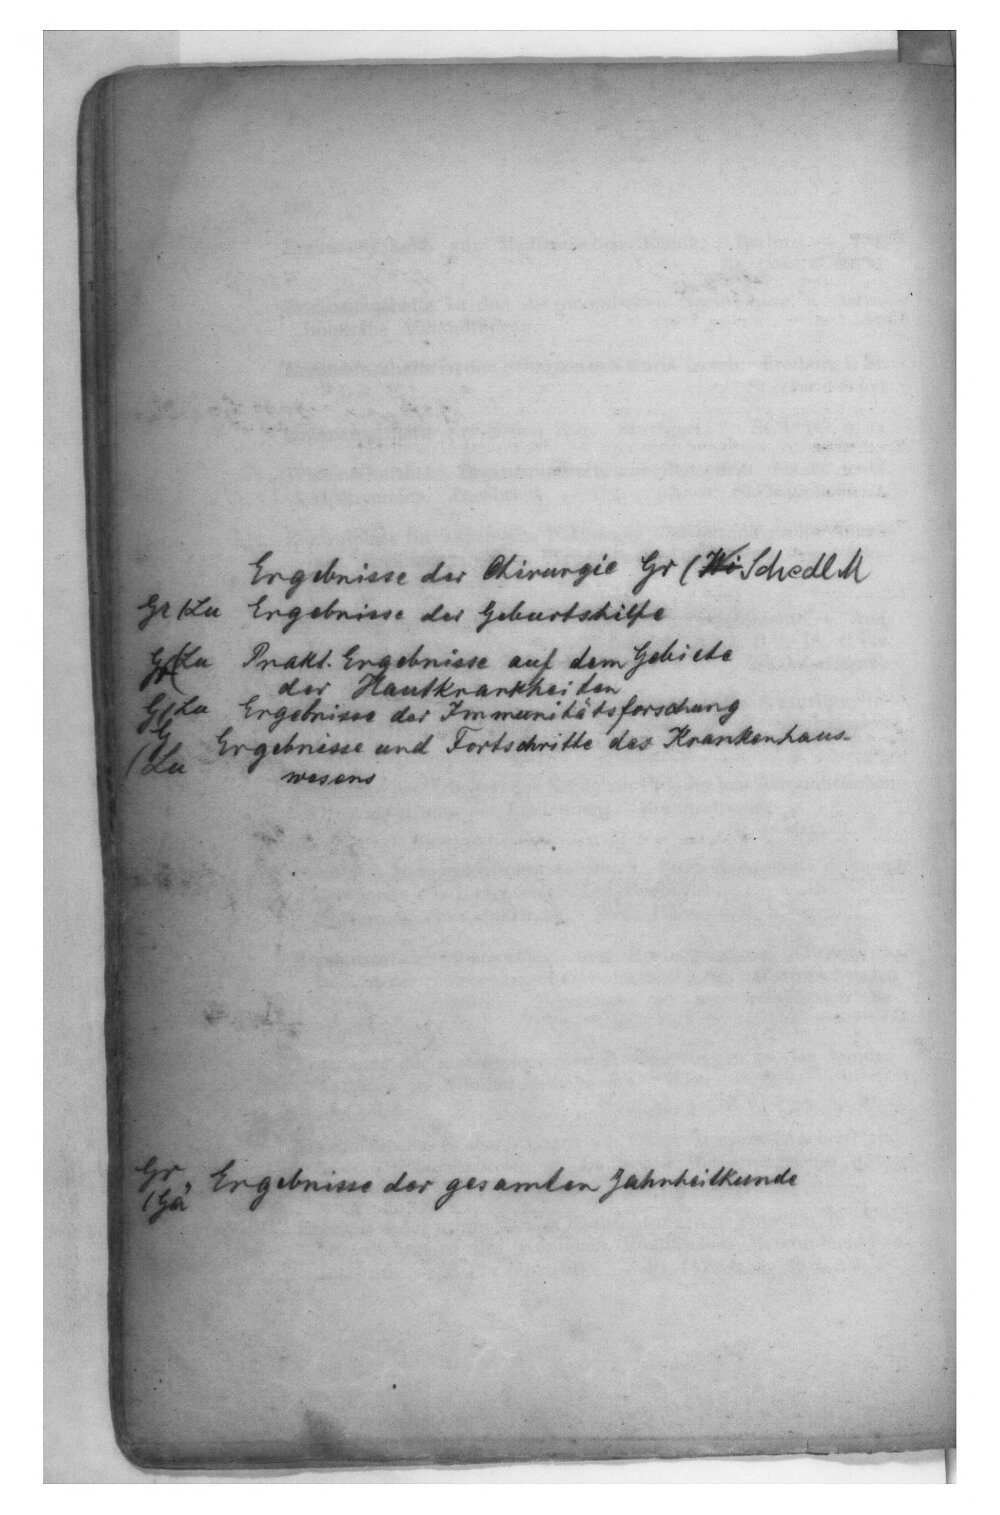 Ergebnisse der Chirurgie Gr ( Schedl M
Gr /Lu Ergebnisse der Geburtshilfe
Gr(Lu Prakt. Ergebnisse auf dem Gebiete
der Hautkrankheiten
G(Lu Ergebnisse der Immunitätsforschung
G Ergebnisse und Fortschritte des Krankenhaus-
(Lu wesens
Gr, Ergebnisse der gesamten Zahnheilkunde
(Gä